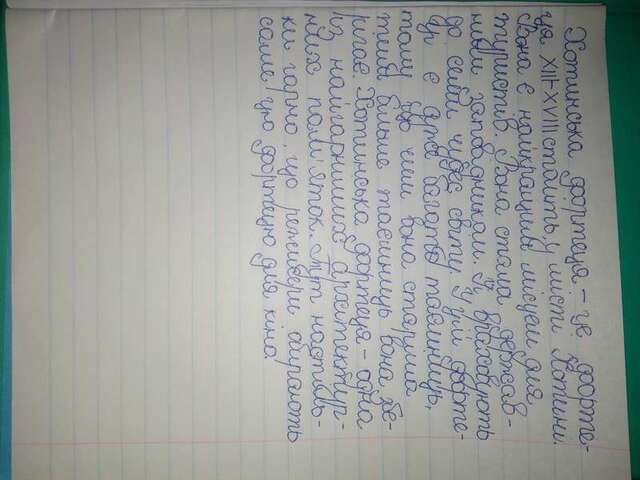 Хотинська фортеця - це форте-
ця XIII-XVIII століть у місті Хотині.
Вона є найкращим місцем для
туристів. Вона стала держав-
ним заповідником. Її враховують
до семи чудес світу. У цій форте-
ці є дуже багато таємниць,
тому що чим вона старша
тим більше таємниць вона збе-
рігає. Хотинська фортеця - одна
із найгарніших архітектур-
них пам'яток. Тут настіль-
ки гарно, що режисери обирають
саме цю фортецю для кіно.